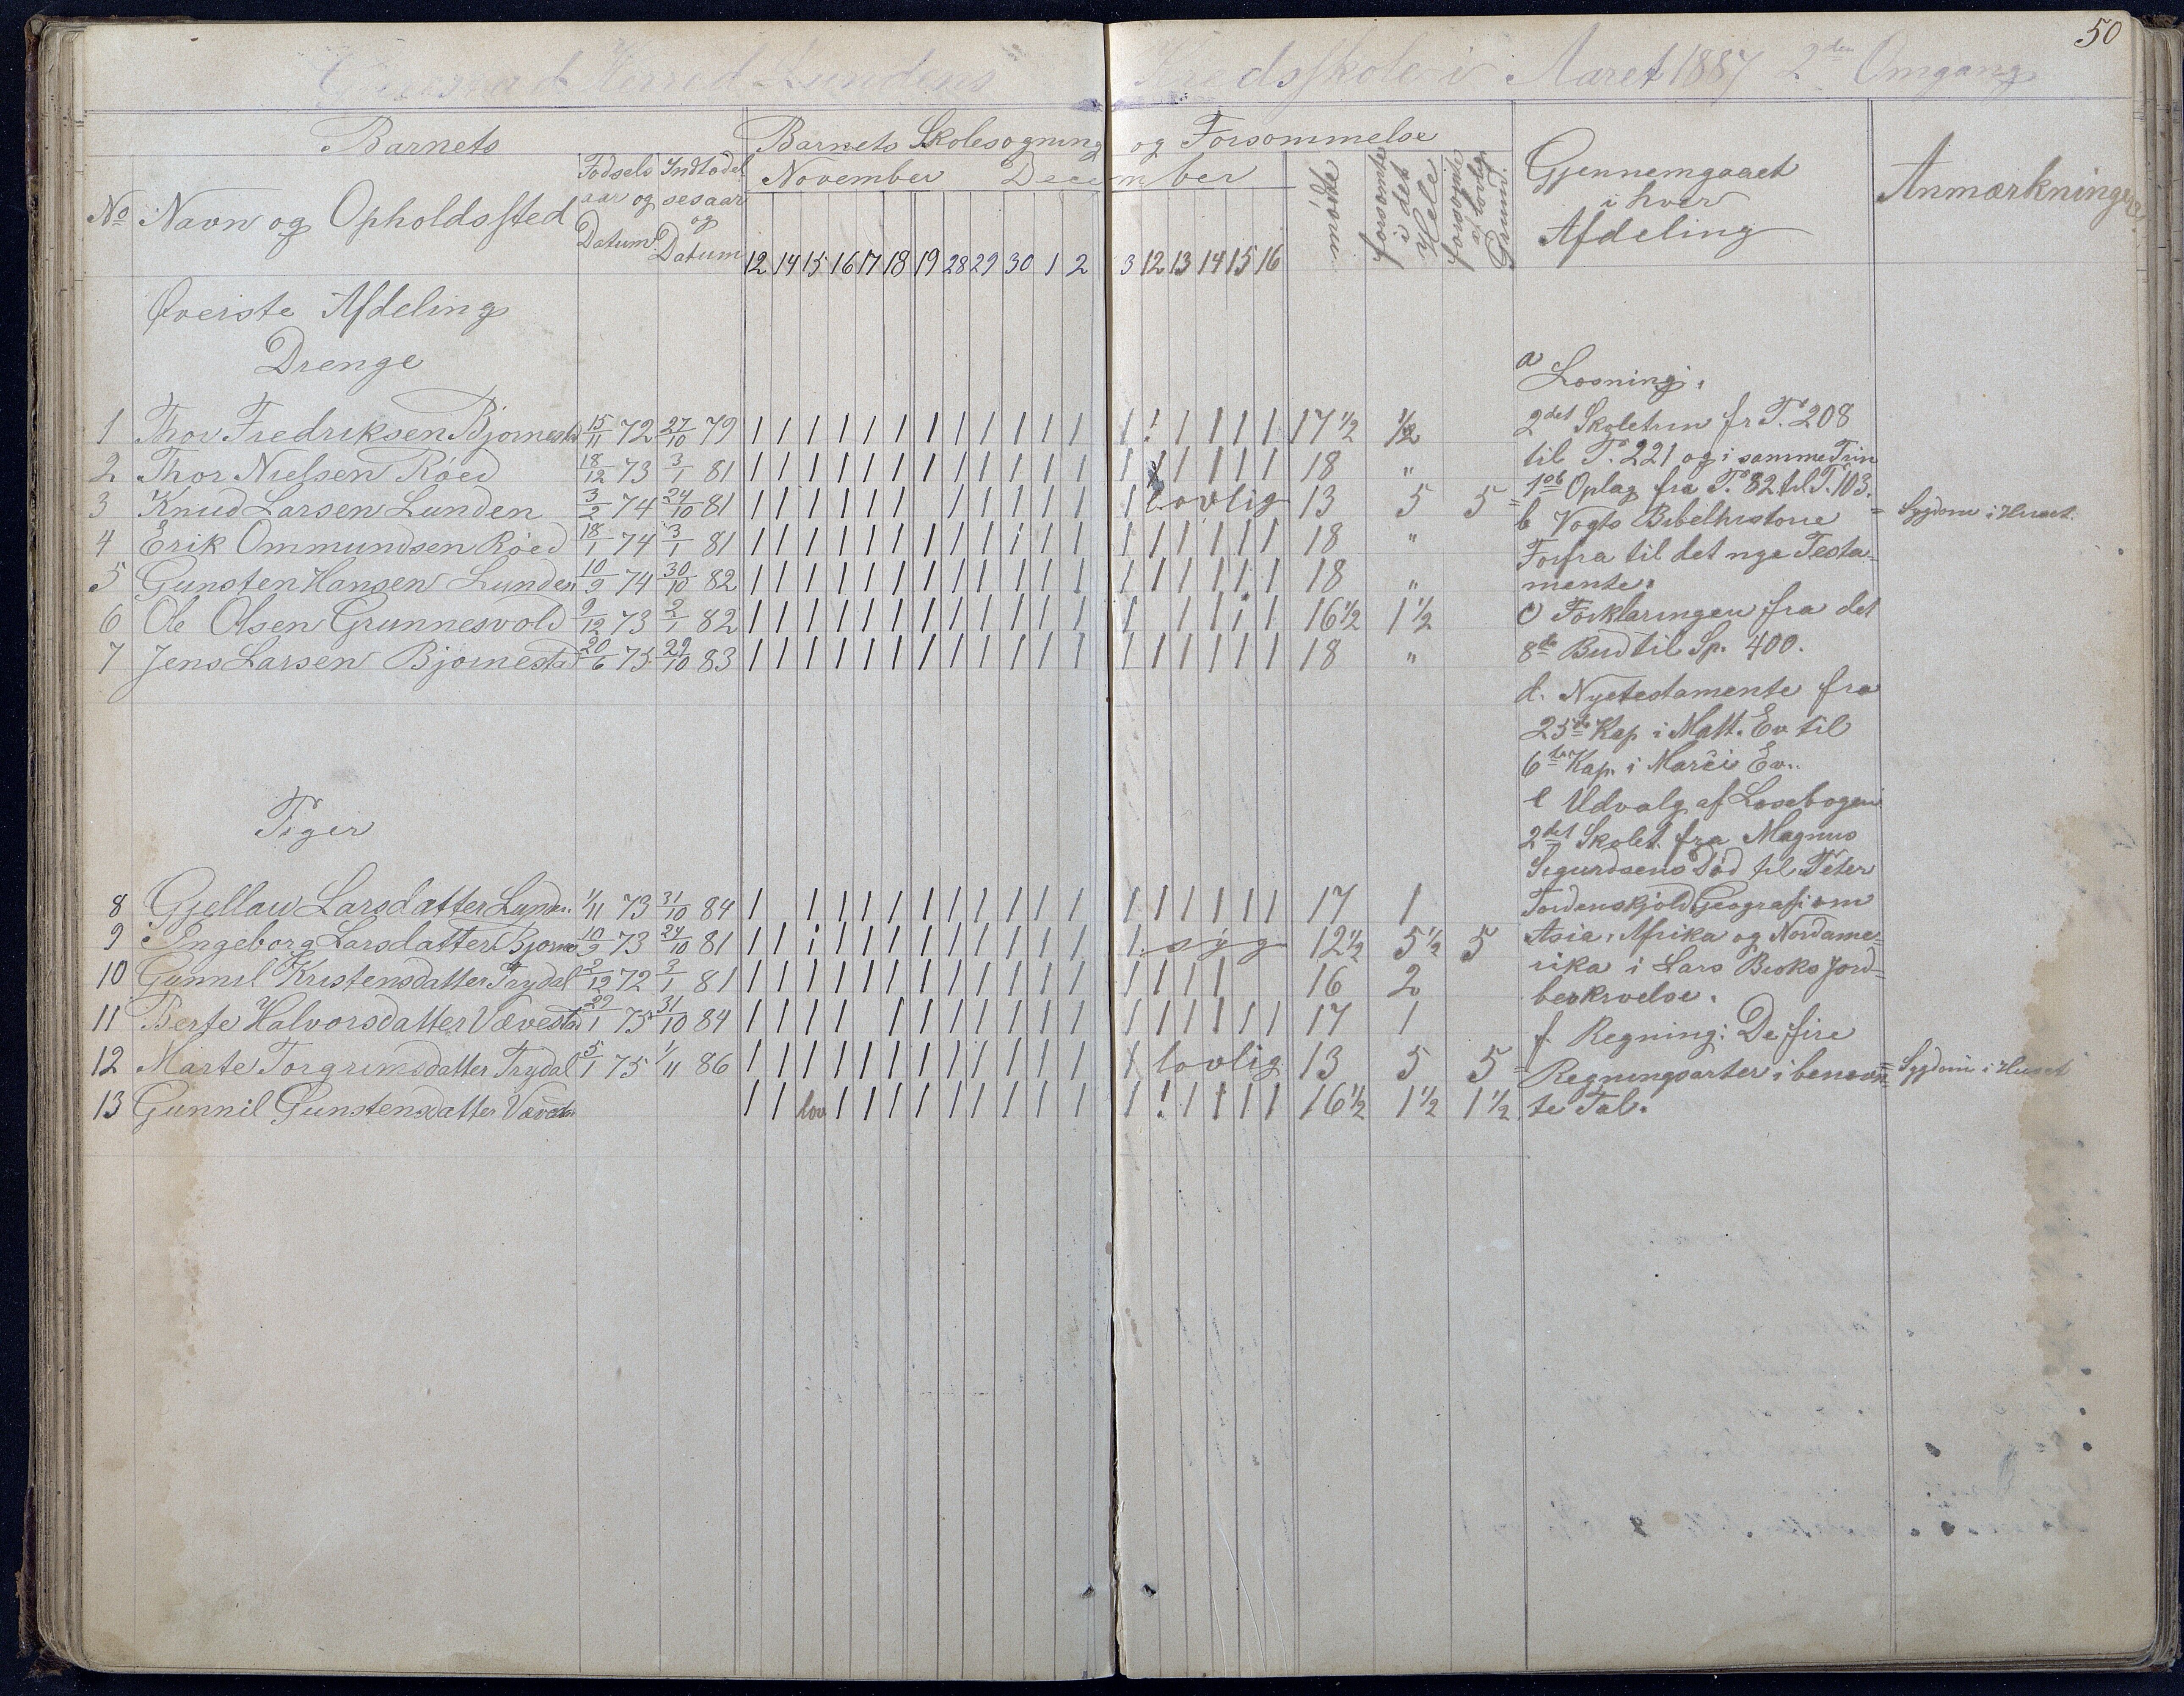 50
Herred Lundens Kredsskole i Aaret 1887 2den Omgang
Barnets
Barnets Skolesøgning og Forsømmelse
No Navn og Opholdssted
Fødsels aar og Datum
Indtrædelsesaar og Datum
November December
12 14 15 16 17 18 19 28 29 30 1 2 3 12 13 14 15 16
mødte
forsømte i det Hele
forsømte Grund.
Gjennemgaaet i hver Afdeling
Anmærkninger
Øverste Afdeling
Drenge
1 Thor Fredriksen Bjørnestad 15/11 72 27/10 79 1 1 1 1 1 1 1 1 1 1 1 1 1 ! 1 1 1 1 17 1/2 1/2
2 Thor Nielsen Røed 18/12 73 3/1 81 1 1 1 1 1 1 1 1 1 1 1 1 1 1 1 1 1 1 18 "
3 Knud Larsen Lunden 3/2 74 24/10 81 1 1 1 1 1 1 1 1 1 1 1 1 lovlig 13 5 5 = = Sygdom i Huset.
4 Erik Ommundsen Røed 18/1 74 3/1 81 1 1 1 1 1 1 1 1 1 1 1 1 1 1 1 1 1 1 18 "
5 Gunsten Hansen Lunden 10/9 74 30/10 82 1 1 1 1 1 1 1 1 1 1 1 1 1 1 1 1 1 1 18 "
6 Ole Olsen Grunnesvold 9/12 73 2/1 82 1 1 1 1 1 1 1 1 1 1 1 1 1 1 1 1 1 16 1/2 1 1/2
7 Jens Larsen Bjørnestad 20/6 75 29/10 83 1 1 1 1 1 1 1 1 1 1 1 1 1 1 1 1 1 1 18 "
Piger
8 Gjellau Larsdatter Lunden 1/11 73 31/10 84 1 1 1 1 1 1 1 1 1 1 1 1 1 1 1 1 1 17 1
9 Ingeborg Larsdatter Bjørne 10/9 73 24/10 81 1 1 i 1 1 1 1 1 1 1 1 1 1 syg 12 1/2 5 1/2 5
10 Gunnil Kristensdatter Trydal 2/12 72 3/1 81 1 1 1 1 1 1 1 1 1 1 1 1 1 1 1 1 16 2
11 Berte Halvorsdatter Vævestad 29/1 75 31/10 84 1 1 1 1 1 1 1 1 1 1 1 1 1 1 1 1 1 17 1
12 Marte Torgrimsdatter Trydal 5/1 75 1/11 86 1 1 1 1 1 1 1 1 1 1 1 1 1 lovlig 13 5 5 = = Sygdom i Huset
13 Gunnil Gunstensdatter Vævestad 1 1 lov 1 1 1 1 1 1 1 1 1 1 ! 1 1 1 1 16 1/2 1 1/2 1 1/2
a Læsning:
2det Skoletrin fr T. 208
til T. 221 og i samme Trin
Oplag fra T. 82 til T. 103.
b Vogts Bibelhistorie
Forfra til det nye Testa-
mente.
c Forklaringen fra det
8de Bud til Sp. 400.
d. Nyetestamente fra
25de Kap i Matt. Ev til
6te Kap. i Marci Ev..
e Udvalg af Læsebogen
2det Skolet. fra Magnus
Sigurdsens Død til Peter
Tordenskjold Geografi om
Asia, Afrika og Nordame-
rika i Lars Beskes Jord-
beskrvelse.
f. Regning: De fire
Regningsarter i benævn-
te Tal.